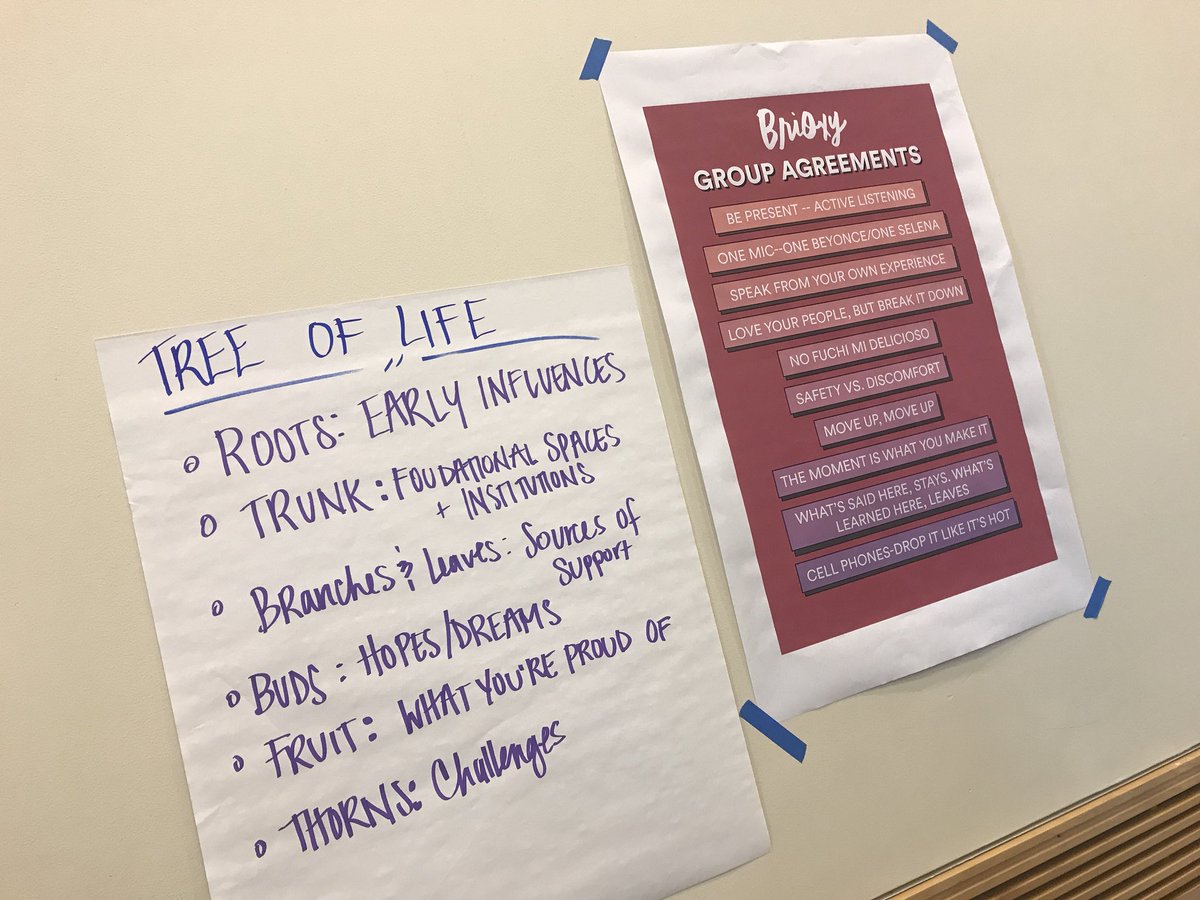 TREE OF LIFE
ROOTS: EARLY INFLUENCES
TRUNK: FOUDATIONAL SPACES
+ INSTITUTIONS
BRanches & Leaves: Sources of
Support
BUDS: HOPES/DREAMS
FRUIT: WHAT YOU'RE PROUD OF
THORNS: Challenges
Brioxy
GROUP AGREEMENTS
BE PRESENT -- ACTIVE LISTENING
ONE MIC--ONE BEYONCE/ONE SELENA
SPEAK FROM YOUR OWN EXPERIENCE
LOVE YOUR PEOPLE, BUT BREAK IT DOWN
NO FUCHI MI DELICIOSO
SAFETY VS. DISCOMFORT
MOVE UP, MOVE UP
THE MOMENT IS WHAT YOU MAKE IT
WHAT'S SAID HERE, STAYS. WHAT'S
LEARNED HERE, LEAVES
CELL PHONES-DROP IT LIKE IT'S HOT